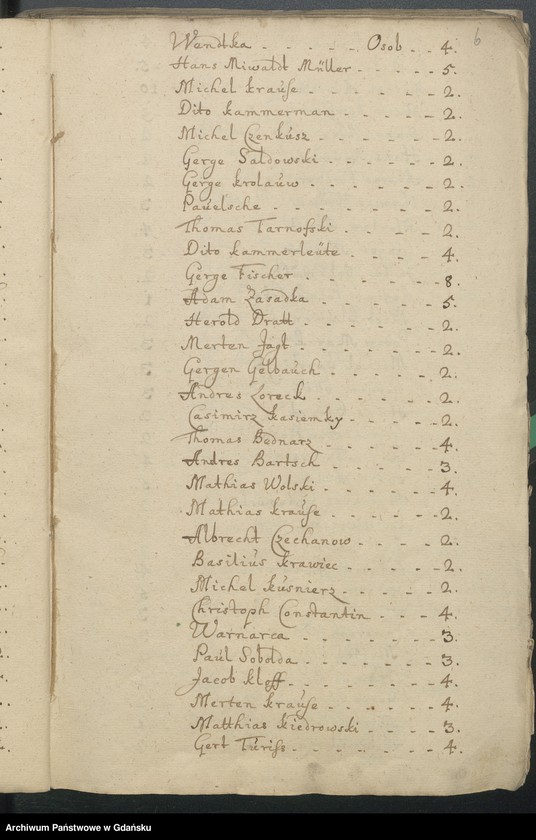 6
Wendtka - - - - - Osob - - 4.
Hans Miwaldt Müller - - - - - 5.
Michel krause - - - - - - 2.
Dito kammerman - - - - - 2.
Michel Czenkusz - - - - - - 2.
Gerge Saldowski - - - - - - 2.
Gerge krolauw - - - - - - 2.
Pauelsche - - - - - - - 2.
Thomas Tarnofski - - - - - 2.
Dito kammerleüte - - - - - 4.
Gerge Fischer - - - - - - 8.
Adam Zasadka - - - - - - 5.
Herold Dratt - - - - - - 2.
Merten Jagt - - - - - - 2.
Gergen Gelbauch - - - - - 2.
Andres Loreck - - - - - - 2.
Casimirz kasiemky - - - - - 2.
Thomas Bednarz - - - - - 4.
Andres Bartsch - - - - - 3.
Mathias Wolski - - - - - 4.
Mathias krause - - - - - 2.
Albrecht Czechanow - - - - 2.
Basilius krawiec - - - - - 2.
Michel kusnierz - - - - - 2.
Christoph Constantin - - - - 4.
Warnarca - - - - - - - 3.
Paul Sobolda - - - - - - 3.
Jacob kloff - - - - - - - 4.
Merten krause - - - - - - 4.
Matthias kiedrowski - - - - 3.
Gert Turiss - - - - - - - 4.
Archiwum Państwowe w Gdańsku